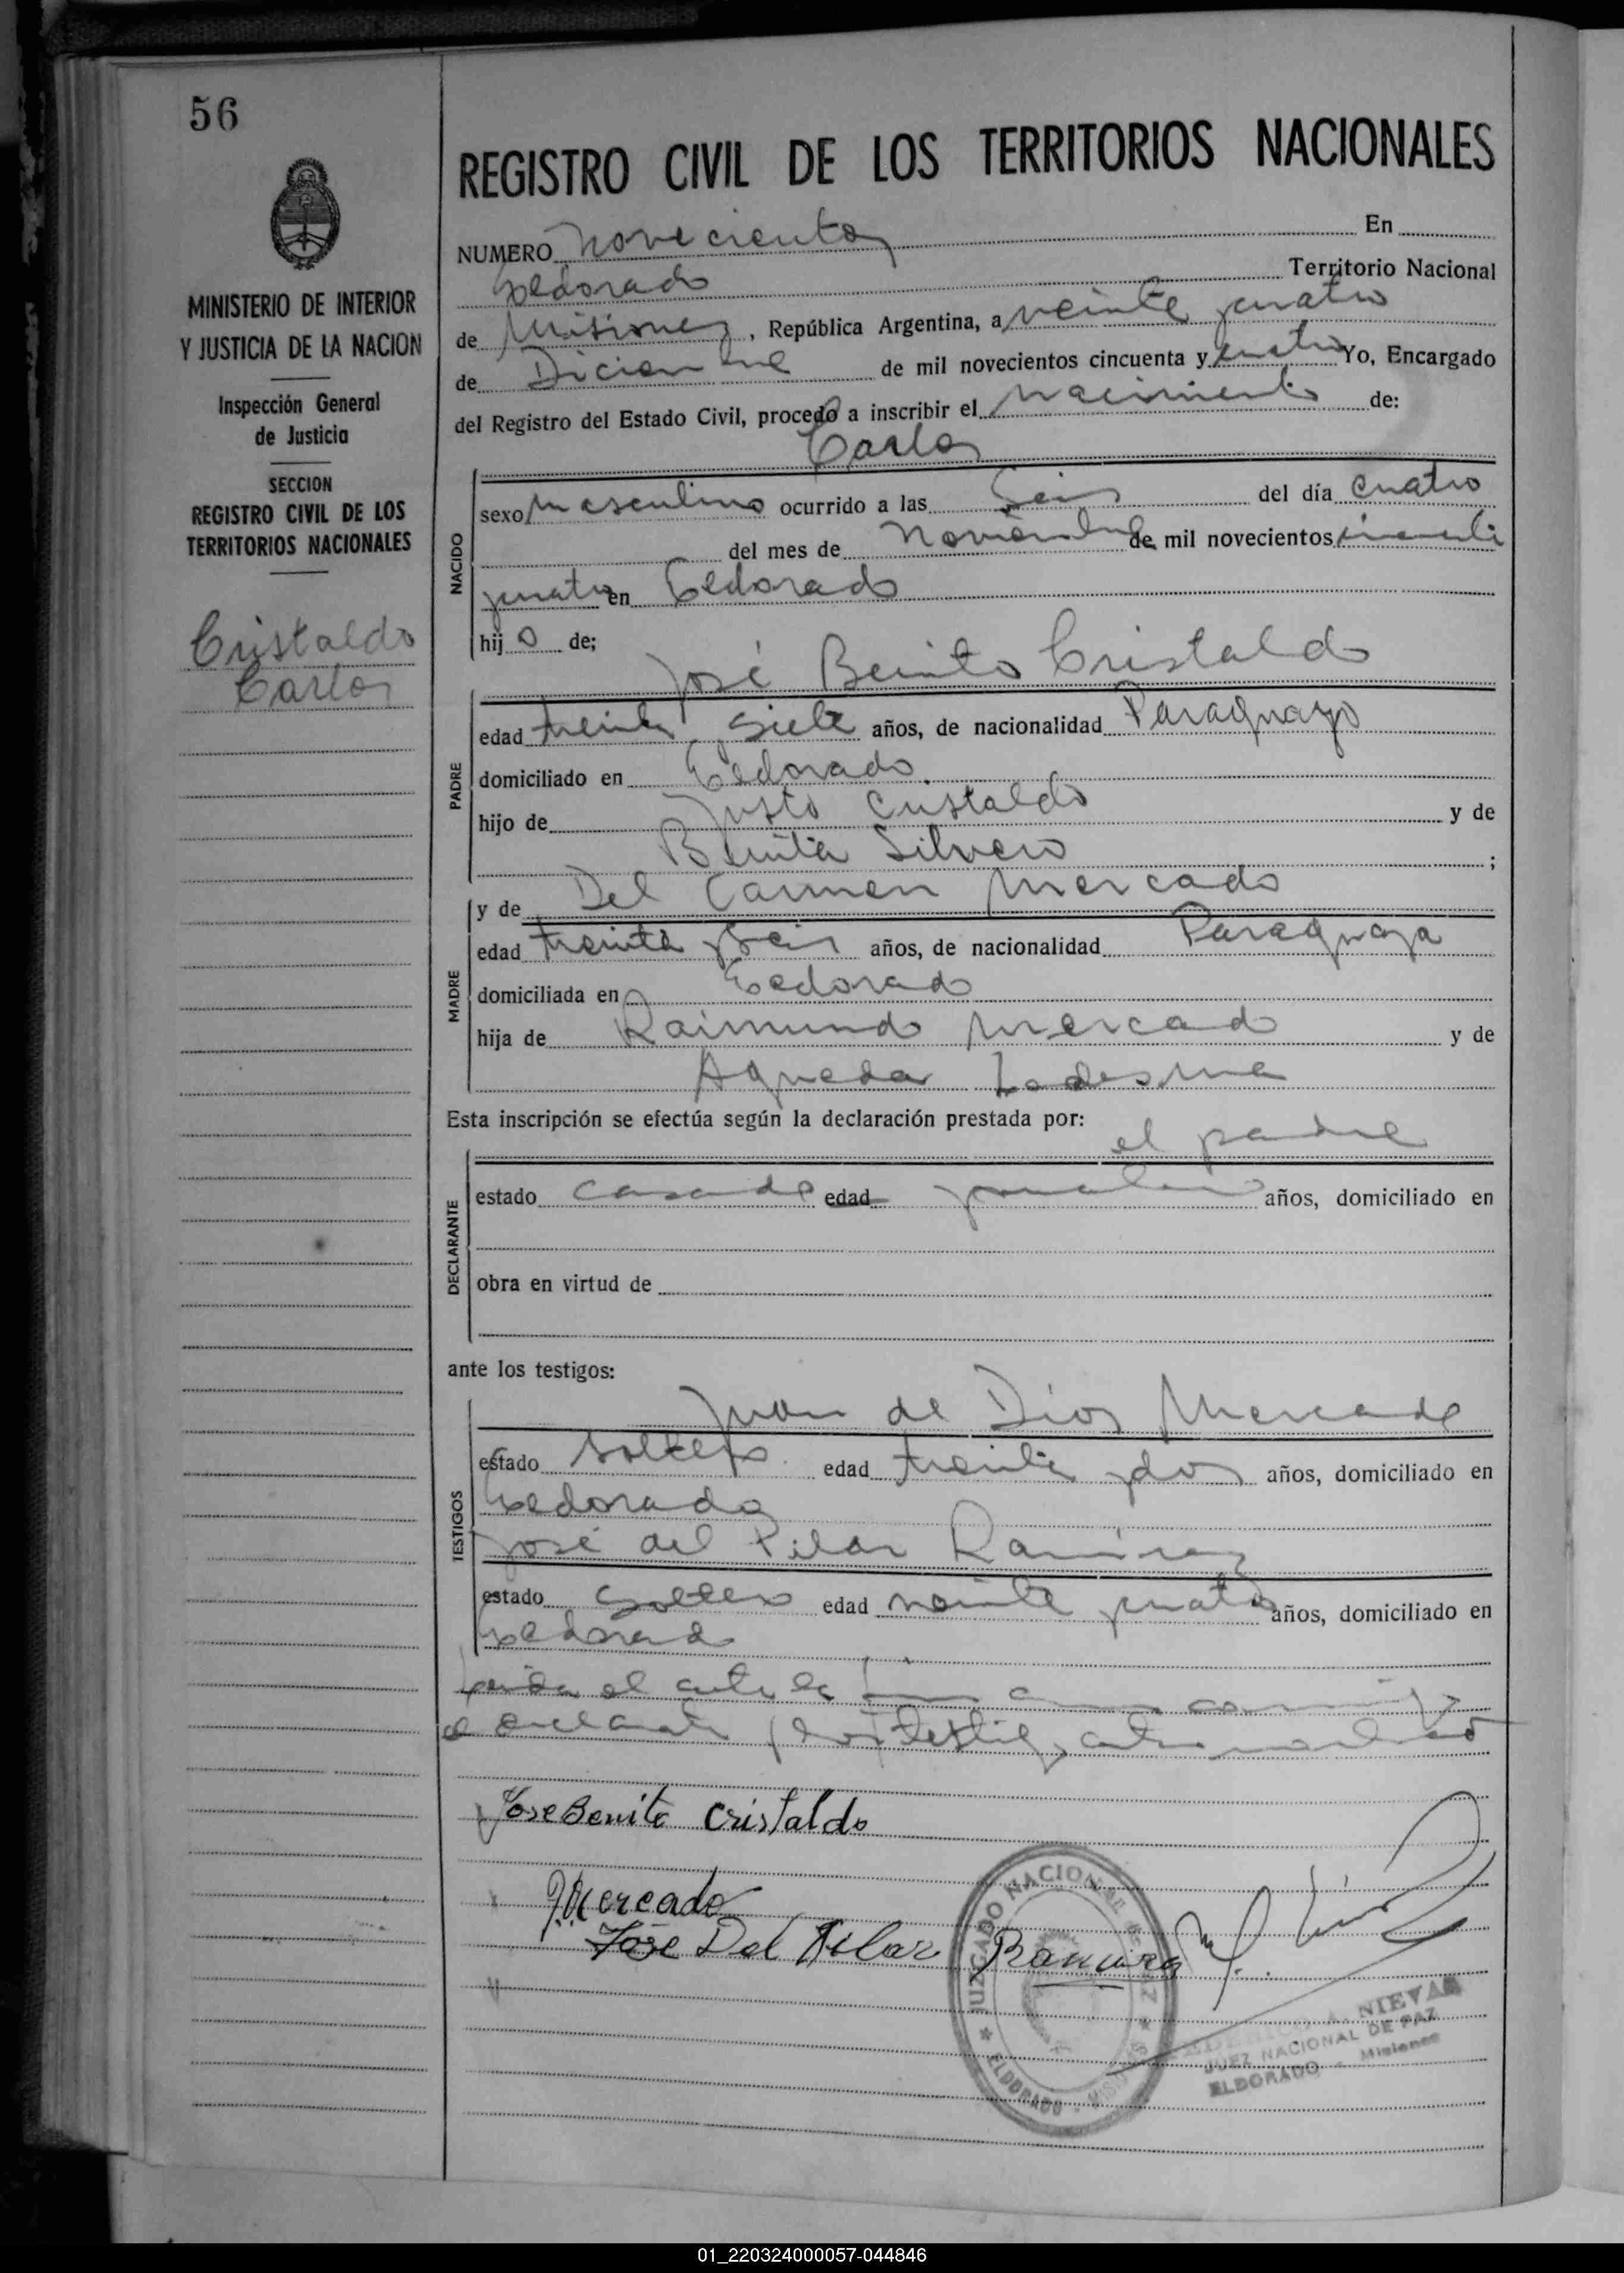 56
REGISTRO CIVIL DE LOS TERRITORIOS NACIONALES
MINISTERIO DE INTERIOR
Y JUSTICIA DE LA NACION
Inspección General
de Justicia
SECCION
REGISTRO CIVIL DE LOS
TERRITORIOS NACIONALES
Cristaldo
Carlos
NUMERO novecientos En
Eldorado Territorio Nacional
de Misiones, República Argentina, a veinte y cuatro
de Diciembre de mil novecientos cincuenta y cuatro Yo, Encargado
del Registro del Estado Civil, procedo a inscribir el nacimiento de:
Carlos
NACIDO
sexo masculino ocurrido a las Seis del día cuatro
del mes de Noviembre de mil novecientos cincuenta
y cuatro en Eldorado
hijo de;
José Benito Cristaldo
PADRE
edad treinta y siete años, de nacionalidad Paraguayo
domiciliado en Eldorado
hijo de Justo Cristaldo y de
Benita Silvero ;
y de Del Carmen Mercado
MADRE
edad treinta y seis años, de nacionalidad Paraguaya
domiciliada en Eldorado
hija de Raimundo Mercado y de
Agueda Ledesma
Esta inscripción se efectúa según la declaración prestada por:
el padre
DECLARANTE
estado casado edad años, domiciliado en
obra en virtud de
ante los testigos:
TESTIGOS
Juan de Dios Mercado
estado soltero edad treinta y dos años, domiciliado en
Eldorado
José del Pilar Ramírez
estado soltero edad veinte y cuatro años, domiciliado en
Eldorado
Leida el acta la
el declarante y los testigos
Jose Benito Cristaldo
J Mercado
Jose Del Pilar Ramirez
JUZGADO NACIONAL DE PAZ
ELDORADO - MISIONES
A. NIEVAS
JUEZ NACIONAL DE PAZ
ELDORADO - Misiones
01_220324000057-044846